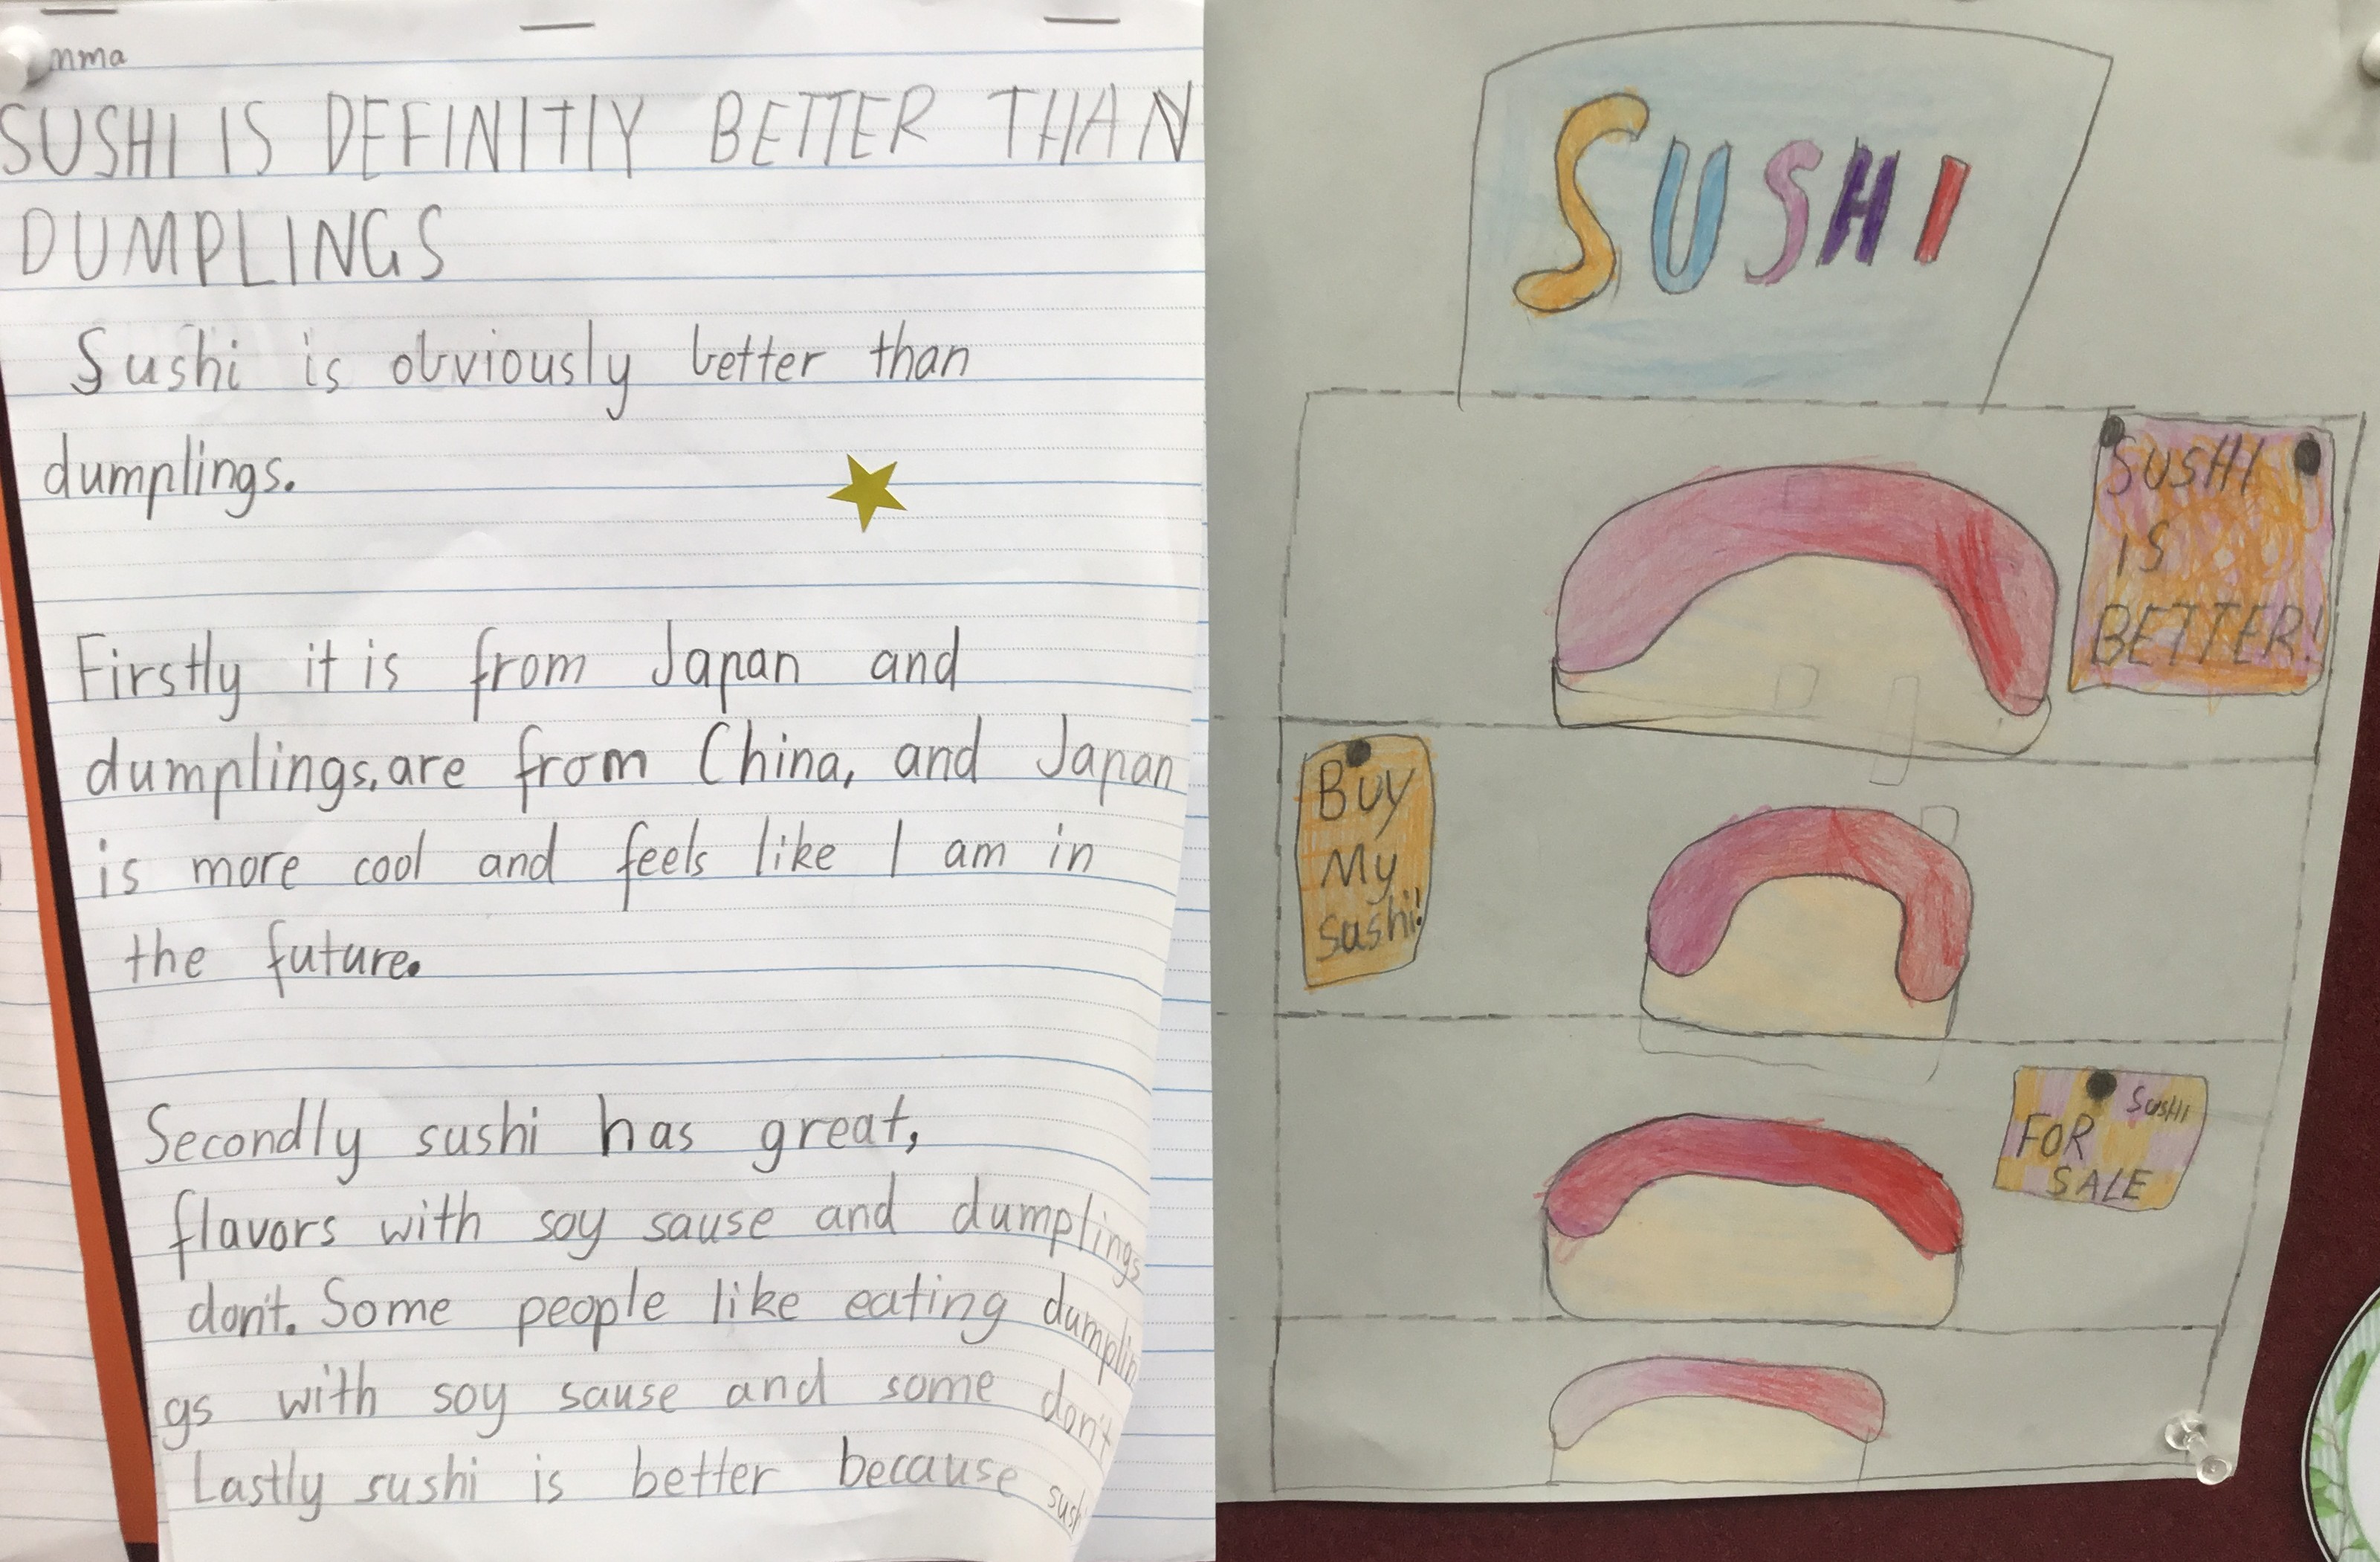 mma
SUSHI IS DEFINITIY BETTER THAN
DUMPLINGS
Sushi is obviously better than
dumplings.
Firstly it is from Japan and
dumplings, are from China, and Japan
is more cool and feels like I am in
the future.
Secondly sushi has great,
flavors with soy sause and dumplings
don't. Some people like eating dumplin
gs with soy sause and some don't
Lastly sushi is better because sush
SUSHI
SUSHI
IS
BETTER!
BUY
My
Sushi!
SusHi
FOR
SALE